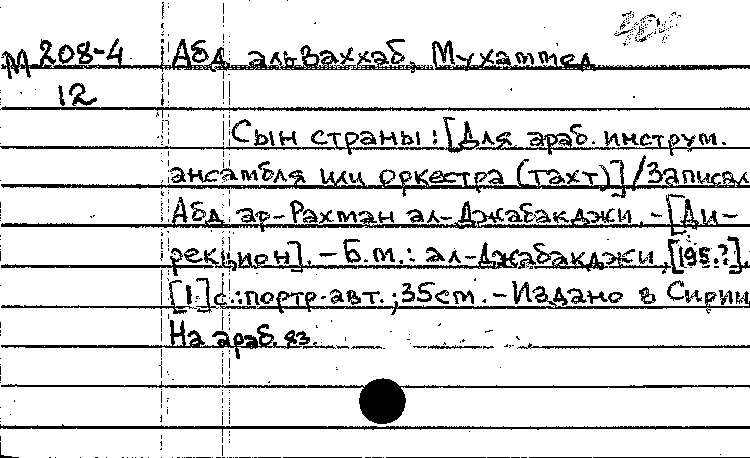 М 208-4 Абд альВаххаб, Мухаммед
12
Сын страны : [Для араб. инструм.
ансамбля или оркестра (тахт)] / Записал
Абд ар-Рахман ал-Джабакджи. - [Ди-
рекцион]. - Б.м. : ал-Джабакджи, [195.?].
[1] с.: портр. авт. ; 35см. - Издано в Сирии
На араб. яз.